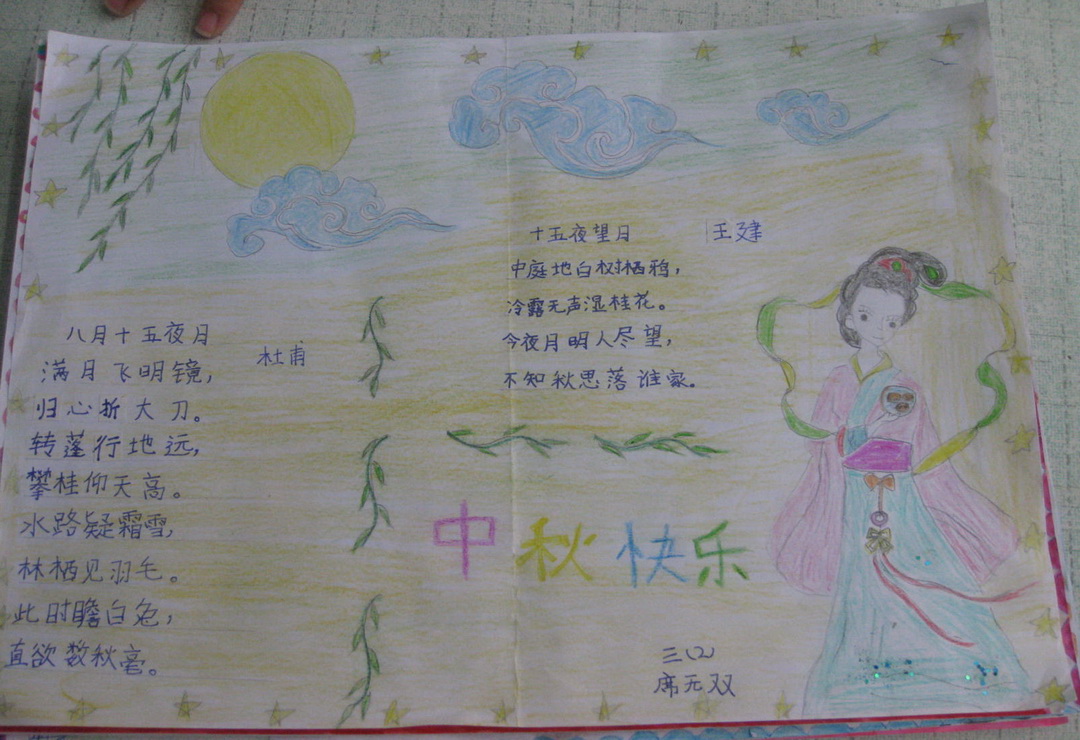 八月十五夜日
杜甫
满月飞明镜，
归心折大刀。
转蓬行地远，
攀桂仰天高。
水路疑霜雪，
林栖见羽毛。
此时瞻白兔，
直欲数秋毫。
十五夜望日 王建
中庭地白树栖鸦，
冷露无声湿桂花。
今夜月明人尽望，
不知秋思落谁家。
中秋快乐
三(2)
席无双